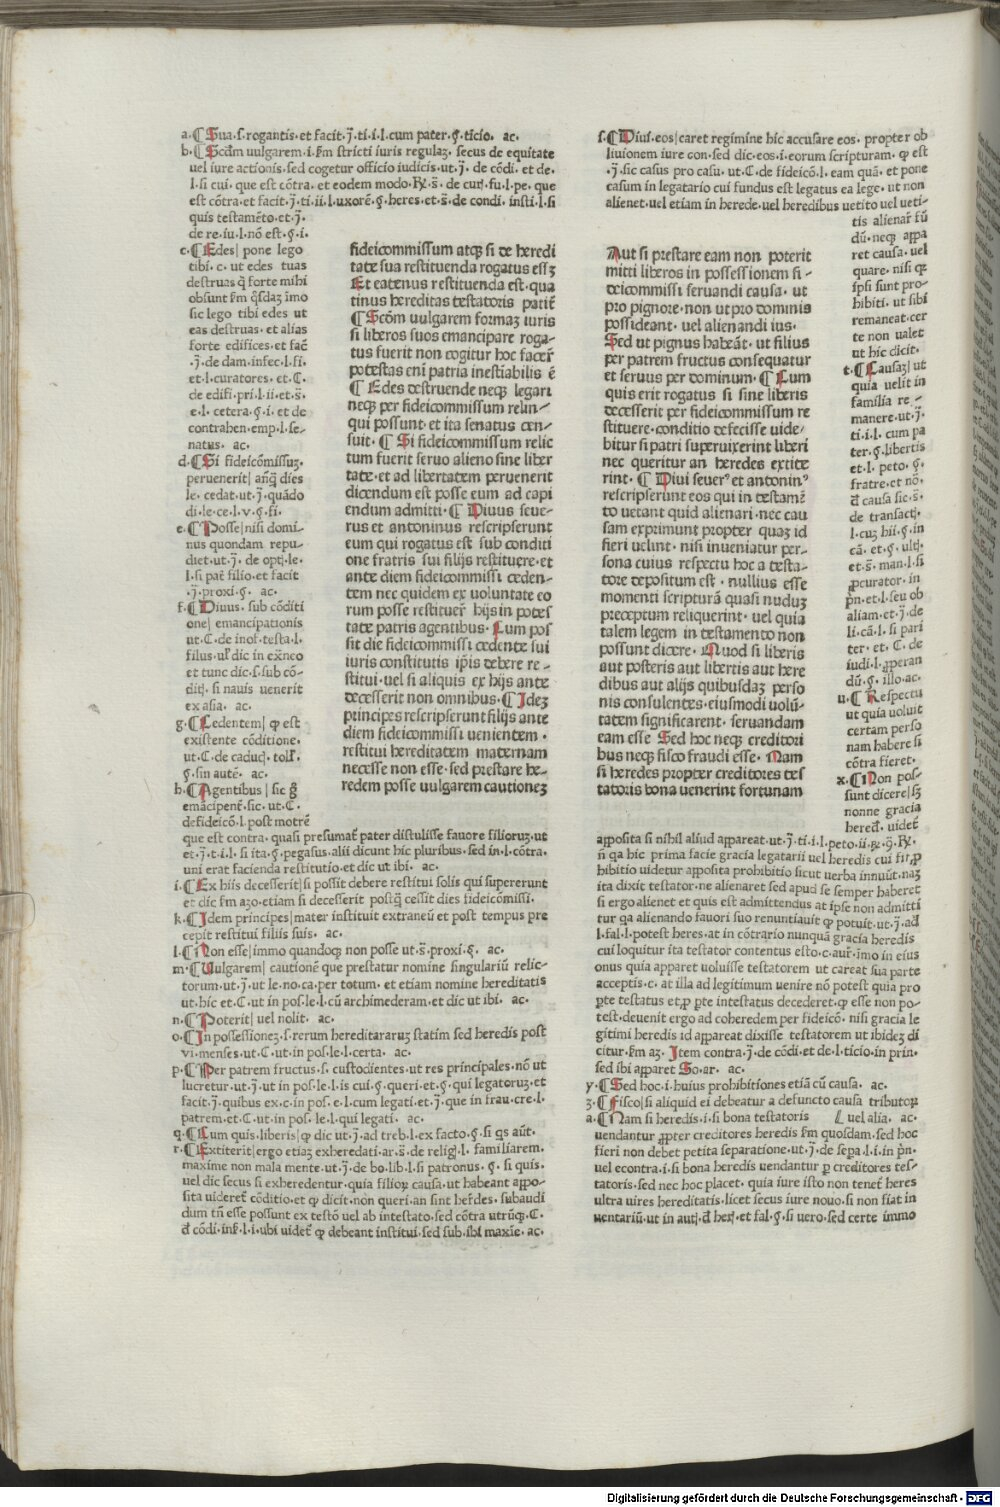 a.¶Sua.s.rogantis.et facit.j̄.ti.i.l.cum pater.§.ticio. ac.
b.¶Scd̄m uulgarem.i.s̄m stricti iuris regulaȝ. secus de equitate
uel iure actionis.sed cogetur officio iudicis.ut.j̄.de cōdi. et de.
l.si cui. que est cōtra. et eodem modo. que
est cōtra.et facit.j̄.ti.ii.l.uxorē.§.heres.et.s̄.de condi. insti.l.si
quis testamēto.et.j̄.
de re.iu.l.nō est.§.i.
c.¶Edes| pone lego
tibi.c.ut edes tuas
destruas forte mihi
obsunt imo
sic lego tibi edes ut
eas destruas.et alias
forte edifices.et fac̄
.j̄.de dam.infec.l.fi.
et.l.curatores.et.C.
de edifi.pri.l.ii.et.s̄.
e.l.cetera.§.i.et de
contrahen.emp.l.se-
natus. ac.
d.¶Si fideicōmissuȝ.
peruenerit| dies
le.cedat.ut.j̄.quādo
di.le.ce.l.v.§.fi.
e.¶Posse|nisi domi-
nus quondam repu-
diet.ut.j̄.de opt.le.
l.si pat̄ filio.et facit
.j̄.proxi.§. ac.
f.¶Diuus.sub cōditi
one| emancipationis
ut.C.de inof.testa.l.
filius. dic in
et tunc dic.s.sub cō-
dit̄.si nauis uenerit
ex asia. ac.
g.¶Cedentem| est
existente cōditione.
ut.C.de caduc.
§.sin aute. ac.
h.¶Agentibus| sic
emācipent̄.sic.ut.C.
de fideicō.l.post motrē
que est contra. quasi presumat̄ pater distulisse fauore filioruȝ.ut
et.j̄.t.i.l.si ita.§.pegasus.alii dicunt hic pluribus.sed in.l.cōtra.
uni erat facienda restitutio.et dic ut ibi. ac.
i.¶Ex hiis decesserit|si possit debere restitui solis qui supererunt
et dic s̄m azo.etiam si decesserit postq̄ cessit dies fideicōmissi.
k.¶Idem principes|mater instituit extraneū et post tempus pre
cepit restitui filiis suis. ac.
l.¶Non esse|immo quandoq; non posse ut.s̄.proxi.§. ac.
m.¶Vulgarem| cautionē que prestatur nomine singulariū relic-
torum.ut.j̄.ut le.no.ca.per totum.et etiam nomine hereditatis
ut.hic et.C.ut in pos.le.l.cū archimederam.et dic ut ibi. ac.
n.¶Poterit|uel nolit. ac.
o.¶In possessioneȝ.s.rerum hereditararuȝ statim sed heredis post
vi.menses.ut.C.ut.in pos.le.l.certa. ac.
p.¶Per patrem fructus.s.custodientes.ut res principales.nō ut
lucretur.ut.j̄.ut in pos.le.l.is cui.§.queri.et.§.qui legatoruȝ.et
facit.j̄.quibus ex.c.in pos.e.l.cum legati.et.j̄.que in frau.cre.l.
patrem.et.C.ut in pos.le.l.qui legati. ac.
q.¶Cum quis.liberis| dic ut.j̄.ad treb.l.ex facto.§.si qs aūt.
r.¶Extiterit|ergo etiaȝ exheredati.ar.s̄.de relig.l.familiarem.
maxime non mala mente.ut.j̄.de bo.lib.l.si patronus.§.si quis.
uel dic secus si exheredentur.quia filioȝ causa.ut habeant appo-
sita uideret̄ cōditio.et dicit.non queri.an sint heredes.subaudi
dum tn̄ esse possunt ex testō uel ab intestato.sed cōtra utrūq;.C.
cōdi.inst.l.i.ubi uidet̄ debeant institui.sed sub.ibi maxie. ac.
fideicommissum atq; si de heredi
tate sua restituenda rogatus esseȝ
Et eatenus restituenda est.qua
tinus hereditas testatoris patit̄
¶Scdm̄ uulgarem formaȝ iuris
si liberos suos emancipare roga-
tus fuerit non cogitur hoc facer̄
potestas eni patria inestiabilis ē
¶Edes destruende neq; legari
neq; per fideicommissum relin-
qui possunt.et ita senatus cen-
suit.¶Si fideicommissum relic
tum fuerit seruo alieno sine liber
tate.et ad libertatem peruenerit
dicendum est posse eum ad capi
endum admitti.¶Diuus seue-
rus et antoninus rescripserunt
eum qui rogatus est sub conditi
one fratris sui filijs restituere.et
ante diem fideicommissi ceden-
tem nec quidem ex uoluntate eo
rum posse restituer̄ hijs in potes
tate patris agentibus.Cum pos
sit die fideicommissi cedente sui
iuris constitutis ip̄is debere re-
stitui.uel si aliquis ex hijs ante
decesserit non omnibus.¶Ideȝ
principes rescripserunt filijs ante
diem fideicommissi uenientem.
restitui hereditatem maternam
necesse non esse.sed prestare he-
redem posse uulgarem cautioneȝ
Aut si prestare eam non poterit
mitti liberos in possessionem fi-
deicommissi seruandi causa.ut
pro pignore.non ut pro dominis
possideant.uel alienandi ius.
Sed ut pignus habeāt.ut filius
per patrem fructus consequatur
et seruus per dominum.¶Cum
quis erit rogatus si sine liberis
decesserit per fideicommissum re
stituere.conditio defecisse uide-
bitur si patri superuixerint liberi
nec queritur an heredes extite
rint.¶Diui seuer⁹ et antonin⁹
rescripserunt eos qui in testamē
to uetant quid alienari.nec cau
sam exprimunt propter quaȝ id
fieri uelint.nisi inueniatur per-
sona cuius respectu hoc a testa-
tore depositum est.nullius esse
momenti scripturā quasi nuduȝ
preceptum reliquerint.uel quia
talem legem in testamento non
possunt dicere.Quod si liberis
aut posteris aut libertis aut here
dibus aut alijs quibusdaȝ perso
nis consulentes.eiusmodi uolū-
tatem significarent.seruandam
eam esse Sed hoc neq; creditori
bus neq; fisco fraudi esse.Nam
si heredes propter creditores tes
tatoris bona uenerint fortunam
s.¶Diui.eos|caret regimine hic accusare eos.propter ob
liuionem iure con.sed dic.eos.i.eorum scripturam. est
.j̄.sic casus pro casu.ut.C.de fideicō.l.eam quā.et pone
casum in legatario cui fundus est legatus ea lege.ut non
alienet.uel etiam in herede.uel heredibus uetito uel ueti-
tis alienar̄ fū
dū.neq; appa
ret causa.uel
quare.nisi
ipsi sunt pro-
hibiti.ut sibi
remaneat.cer
te non ualet
ut hic dicit.
t.¶Causaȝ|ut
quia uelit in
familia re-
manere.ut.j̄.
ti.i.l.cum pa
ter.§.libertis
et.l.peto.§.
fratre.et nō.
causa sic.s̄.
de transact.
l.cuȝ hii.§.in
cā.et.§.ult.
et.s̄.man.l.si
procurator.in
pn̄.et.l.seu ob
aliam.et.j̄.de
li.cā.l.si pari
ter.et.C.de
iudi.l.properan
dū.§.illo.ac.
u.¶Respectu
ut quia uoluit
certam perso
nam habere si
cōtra fieret.
x.¶Non pos-
sunt dicere|sȝ
nonne gracia
hered. uidet̄
apposita si nihil aliud appareat.ut.j̄.ti.i.l.peto.
n̄ qa hic prima facie gracia legatarii uel heredis cui fit pro
hibitio uidetur apposita prohibitio sicut uerba innuūt.naȝ
ita dixit testator.ne alienaret sed apud se semper haberet
si ergo alienet et quis est admittendus at ipse non admitti
tur qa alienando fauori suo renuntiauit potuit.ut.j̄.ad
l.fal.l.potest heres.at in cōtrario nunquā gracia heredis
cui loquitur ita testator contentus esto.c.aur̄.imo in eius
onus quia apparet uoluisse testatorem ut careat sua parte
acceptis.c.at illa ad legitimum uenire nō potest quia pro
parte testatus et pro parte intestatus decederet. esse non po-
test.deuenit ergo ad coheredem per fideicō.nisi gracia le
gitimi heredis id appareat dixisse testatorem ut ibidez di
citur.s̄m aȝ.Item contra.j̄.de cōdi.et de.l.ticio.in prin.
sed ibi apparet So.ar. ac.
y.¶Sed hoc.i.huius prohibitiones etiā cū causa. ac.
ȝ.¶Fisco|si aliquid ei debeatur a defuncto causa tributoȝ
a.¶Nam si heredis.i.si bona testatoris uel alia. ac.
uendantur propter creditores heredis s̄m quosdam.sed hoc
fieri non debet petita separatione.ut.j̄.de sepa.l.i.in prin.
uel econtra.i.si bona heredis uendantur p creditores tes-
tatoris.sed nec hoc placet.quia iure isto non tenet̄ heres
ultra uires hereditatis.licet secus iure nouo.si non fiat in
uentariū.ut in aut.d her.et fal.§.si uero.sed certe immo
Digitalisierung gefördert durch die Deutsche Forschungsgemeinschaft - DFG